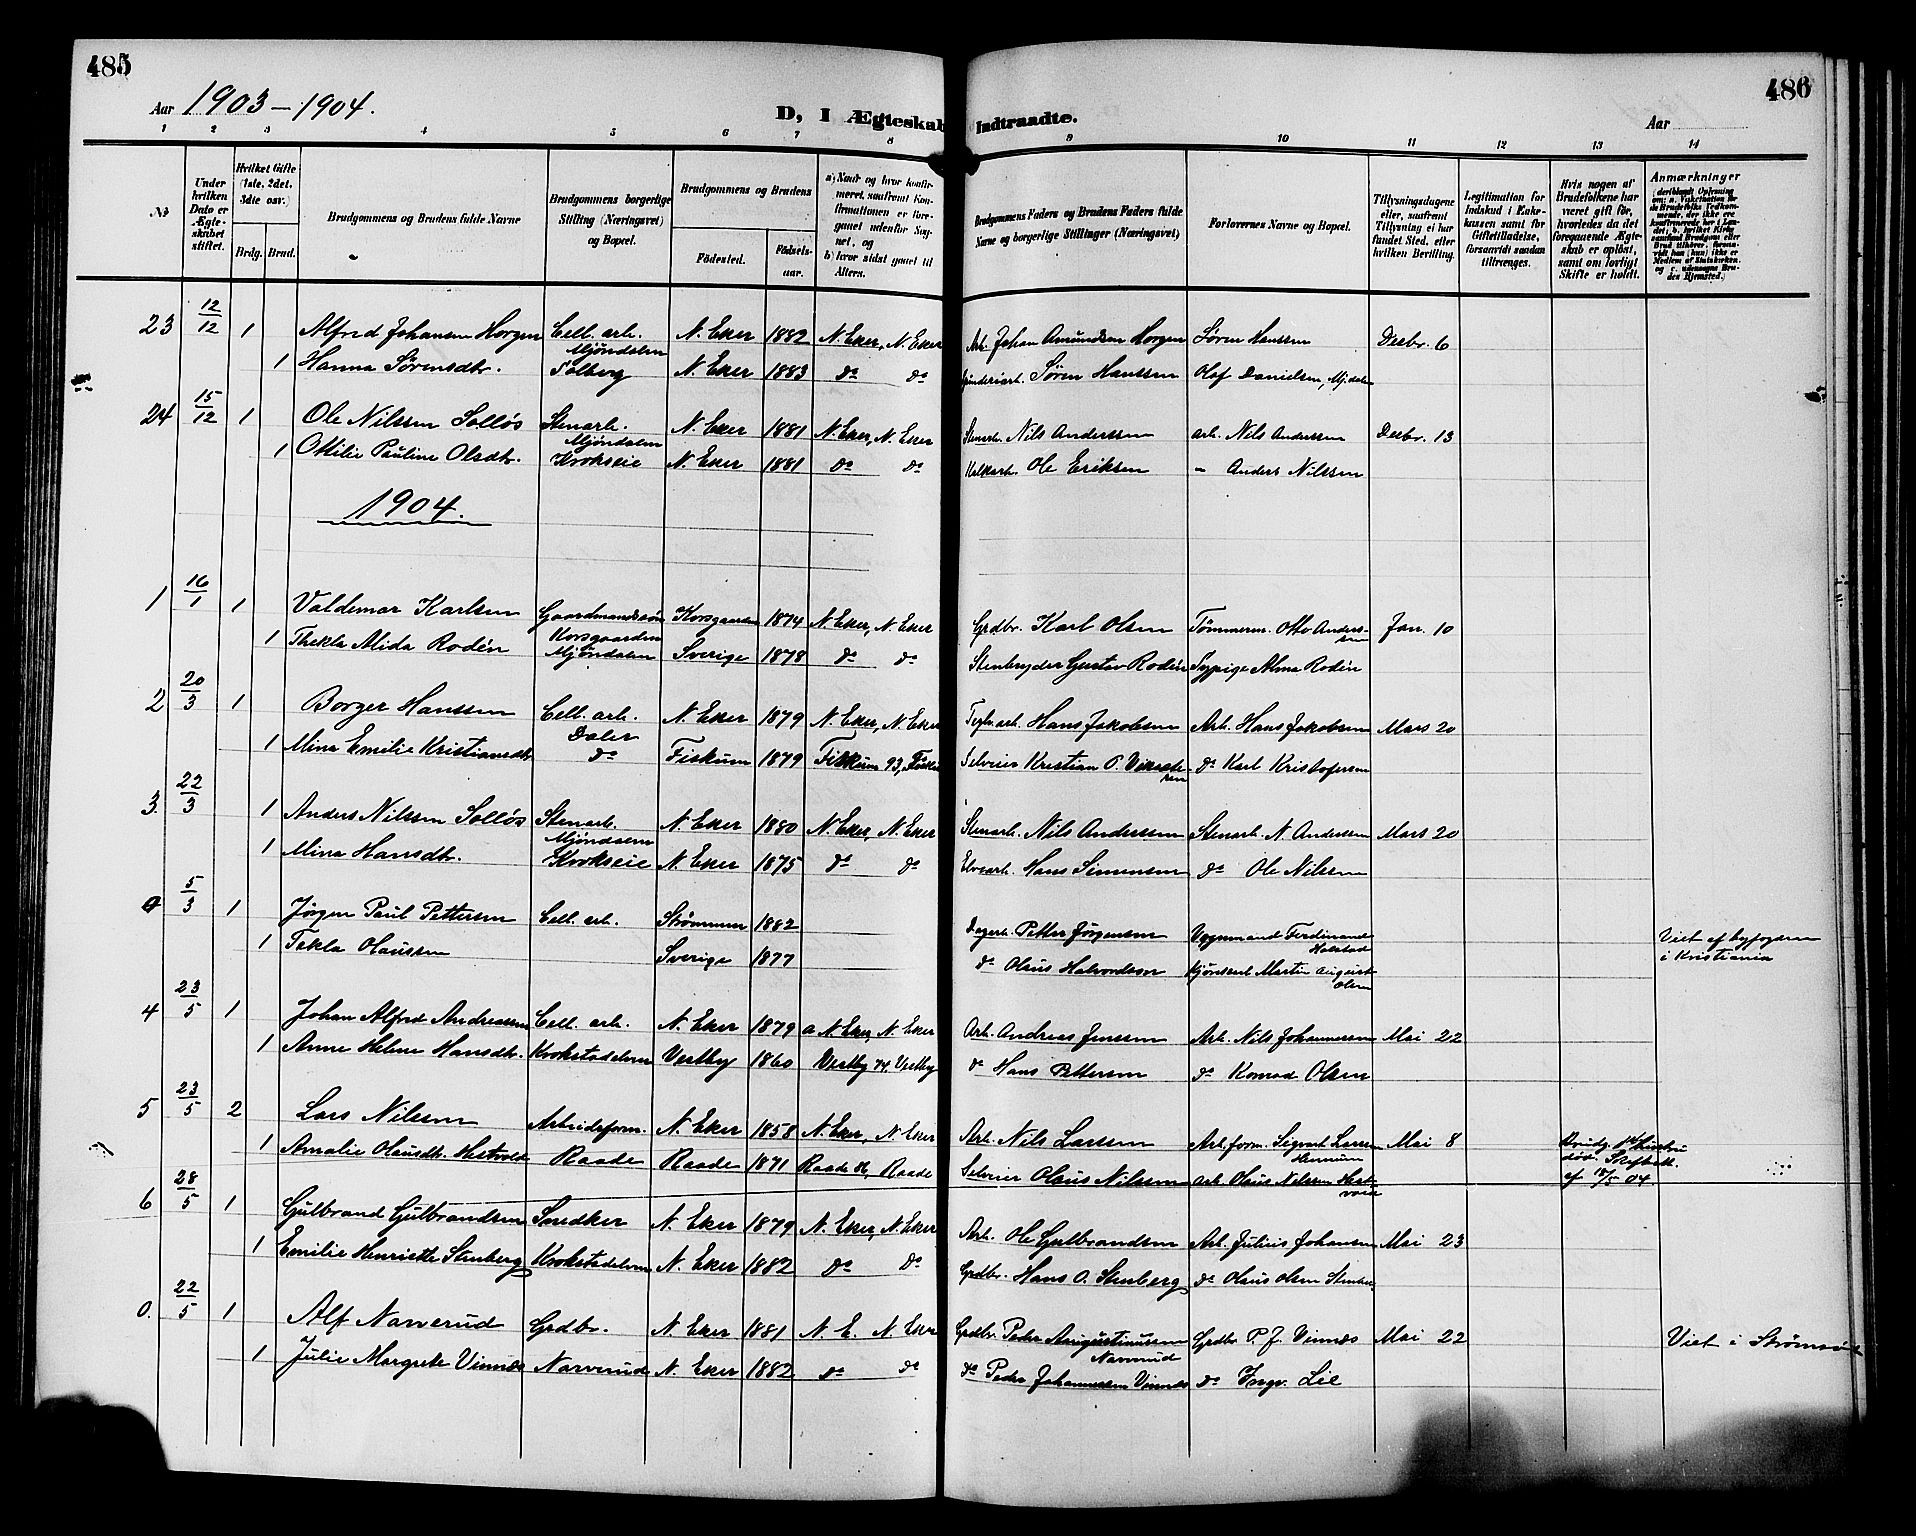 485
486
Aar 1903-1904.
D, I Ægteskab Indtraadte.
Aar
1 2 3 4 5 6 7 8 9 10 11 12 13 14
No
Under hvilken Dato er Ægteskabet stiftet.
Hvilket Gifte (1ste, 2det, 3die osv.)
Brdg. Brud.
Brudgommens og Brudens fulde Navne
Brudgommens borgerlige Stilling (Næringsvei) og Bopæl.
Brudgommens og Brudens
Födested. Födselsaar.
a) Naar og hvor konfirmeret, saafremt Konfirmationen er foregaaet udenfor Sognet, og
b) hvor sidst gaaet til Alters.
Brudgommens Faders og Brudens Faders fulde Navne og borgerlige Stillinger (Næringsvei)
Forlovernes Navne og Bopæl.
Tillysningsdagene eller, saafremt Tillysning ei har fundet Sted, efter hvilken Bevilling.
Legitimation for Indskud i Enkekassen samt for Giftetilladelse, forsaavidt saadan tiltrænges.
Hvis nogen af Brudefolkene har været gift før, hvorledes da det foregaaende Ægteskab er oplöst, samt om lovligt Skifte er holdt.
Anmærkninger
23 12/12 1 Alfred Johansen Horgen Cell. arb. N. Eker 1882 N. Eker, N. Eker Arb. Johan Amundsen Horgen Søren Hanssen Desbr. 6
Mjøndalen
1 Hanna Sørensdtr. Solberg N. Eker 1883 do do Søren Hanssen Olaf Danielsen, Mjdalen
24 15/12 1 Ole Nilssen Solløs Stenarb. N. Eker 1881 N. Eker, N. Eker Stenarb. Nils Anderssen arb. Nils Anderssen Desbr. 13
Mjöndalen
1 Ottilie Pauline Olsdtr. Krokseie N. Eker 1881 do do Kalkarb. Ole Eriksen " Anders Nilssen
1904.
1 16/1 1 Valdemar Karlsen Gaardmandssön Korsgaarden 1874 N. Eker, N. Eker Grdbr. Karl Olsen Tömmerm. Otto Anderssen Jan. 10
Korsgaarden
1 Thekla Alida Rodén Mjöndalen Sverige 1878 do do Stenbryder Gustav Rodén Sypige Alma Rodén
2 20/3 1 Borger Hanssen Cell. arb. N. Eker 1879 N. Eker, N. Eker Teglv.arb. Hans Jakobsen Arb. Hans Jakobsen Mars 20
Daler
1 Mina Emilie Kristiansdtr do Fiskum 1879 Fiskum 93, Selveier Kristian P. do Karl Kristofersen
3. 22/3 1 Anders Nilssen Solløs Stenarb. N. Eker 1880 N. Eker, N. Eker Stenarb. Nils Anderssen Stenarb. N. Anderssen Mars 20
Mjöndalen
1 Mina Hansdtr. Krokseie N. Eker 1875 do do Elvearb. Hans Simensen do Ole Nilssen
0 5/3 1 Jørgen Paul Pettersen Cell. arb. Strømmen 1882 Dagarb. Petter Jørgensen Vognmand Ferdinand Halstad Viet af byfogden
1 Tekla Olaussen Sverige 1877 do Olaus Halvordsson Martin August Olsen i Kristiania
4 23/5 1 Johan Alfred Andreassen Cell. arb. N. Eker 1879 a N. Eker, N. Eker Arb. Andreas Jenssen Arb. Nils Johannessen Mai 22
1 Anne Helene Hansdtr. Krokstadelven Vestby 1860 Vestby 74 Vestby do Hans Pettersen do Konrad Olsen
5 23/5 2 Lars Nilssen Arbeidsform. N. Eker 1858 N. Eker, N. Eker Arb. Nils Larssen Arb.form. Sigvart Larssen Mai 8
1 Amalie Olausdtr. Raade Raade 1871 Raade 86, Raade Selveier Olaus Nilssen arb. Olaus Nilssen
død. Skifteatt. af 18/5 04
6 28/5 1 Gulbrand Gulbrandsen Snedker N. Eker 1879 N. Eker, N. Eker Arb. Ole Gulbrandsen Arb. Julius Johansen Mai 23
1 Emilie Henriette Stenberg Krokstadelven N. Eker 1882 do do Grdbr. Hans O. Stenberg do Olaus Olsen
0. 22/5 1 Alf Narverud Grdbr. N. Eker 1881 N. E. N. Eker Grdbr. Peder Augustinussen Narverud Grdbr P. J. Vinnes Mai 22 Viet i Strømsø
1 Julie Margrete Vinnes Narverud N. Eker 1882 do do do Peder Johannessen Vinnes do Ingv. Lie